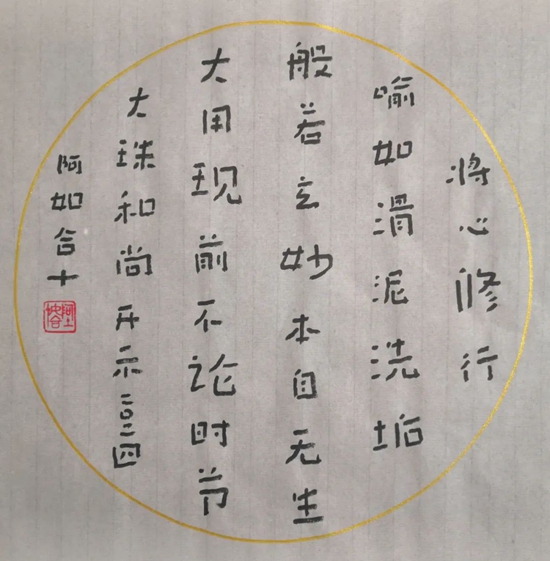 将心修行
喻如滑泥洗垢
般若玄妙本自无生
大用现前不论时节
大珠和尚开示二〇二四
阿如合十